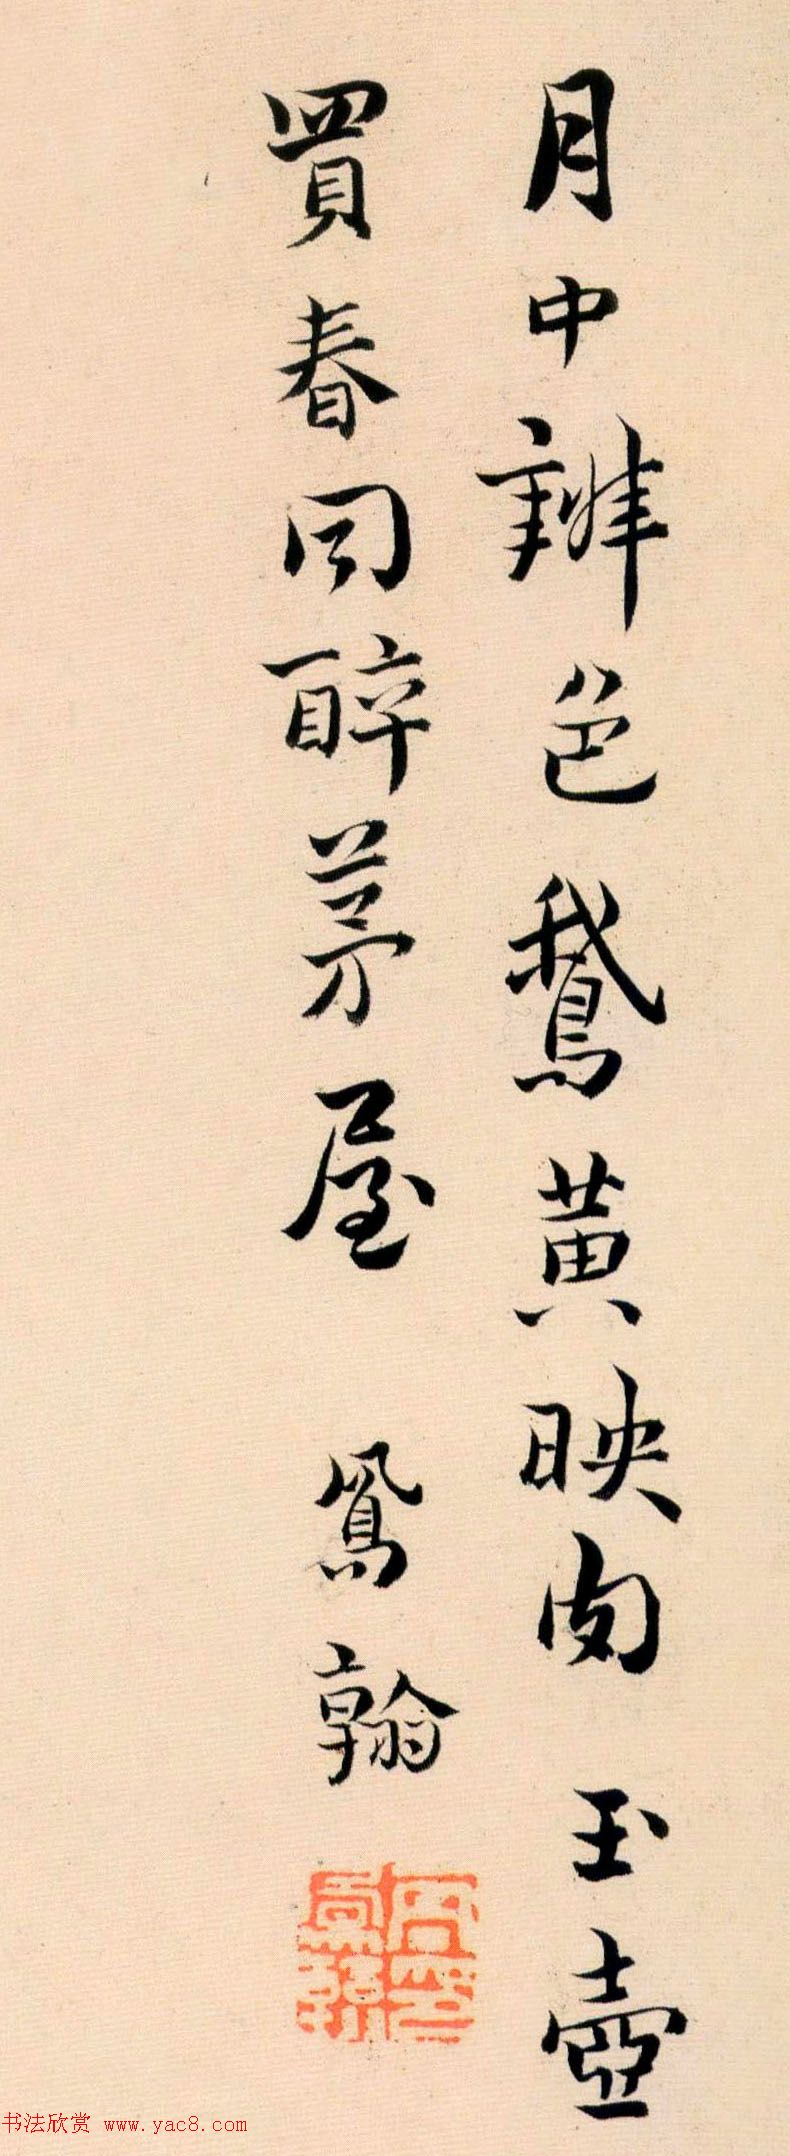 月中辨色鵝黃映肉 玉壺
買春同醉茅屋 鳳翰
书法欣赏 www.yac8.com